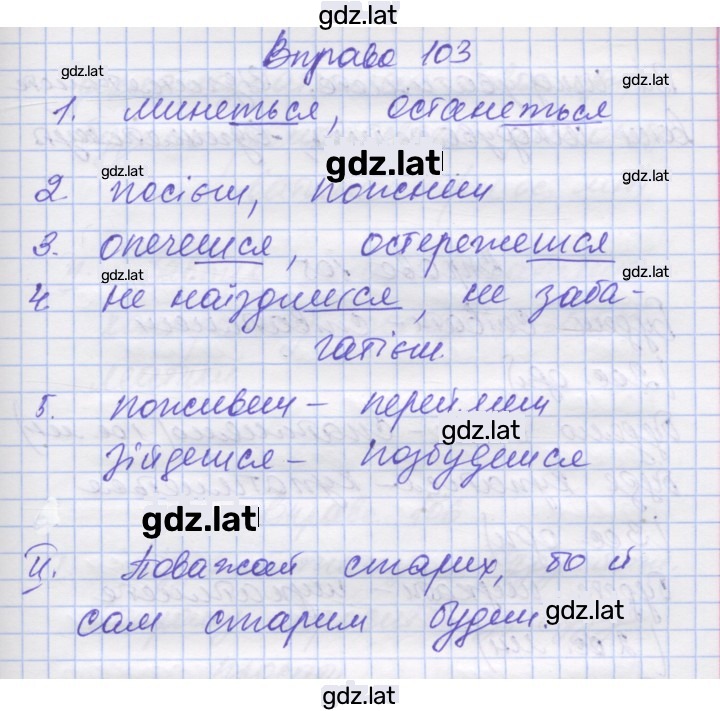 gdz.lat
Вправа 103
gdz.lat gdz.lat
1. минеться, останеться
gdz.lat
gdz.lat gdz.lat
2. посієш, пожнеш
3. опечешся, остережешся
gdz.lat gdz.lat
4. не наїздишся, не заба-
гатієш.
5. поживеш – переймеш
gdz.lat
зійдешся – позбудешся
gdz.lat
II. Поважай старих, бо й
сам старим будеш.
gdz.lat
gdz.lat